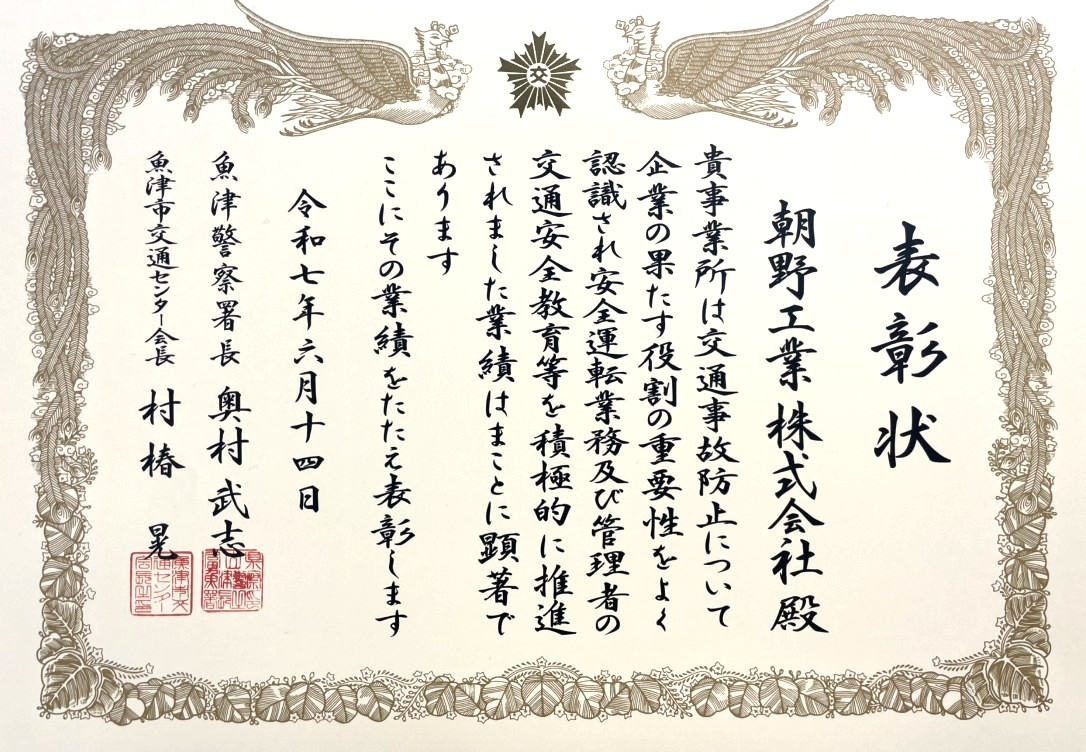 表彰状
朝野工業株式会社 殿
貴事業所は交通事故防止について
企業の果たす役割の重要性をよく
認識され安全運転業務及び管理者の
交通安全教育等を積極的に推進
されました業績はまことに顕著で
あります
ここにその業績をたたえ表彰します
令和七年六月十四日
魚津警察署長 奥村 武志
魚津市交通センター会長 村椿 晃